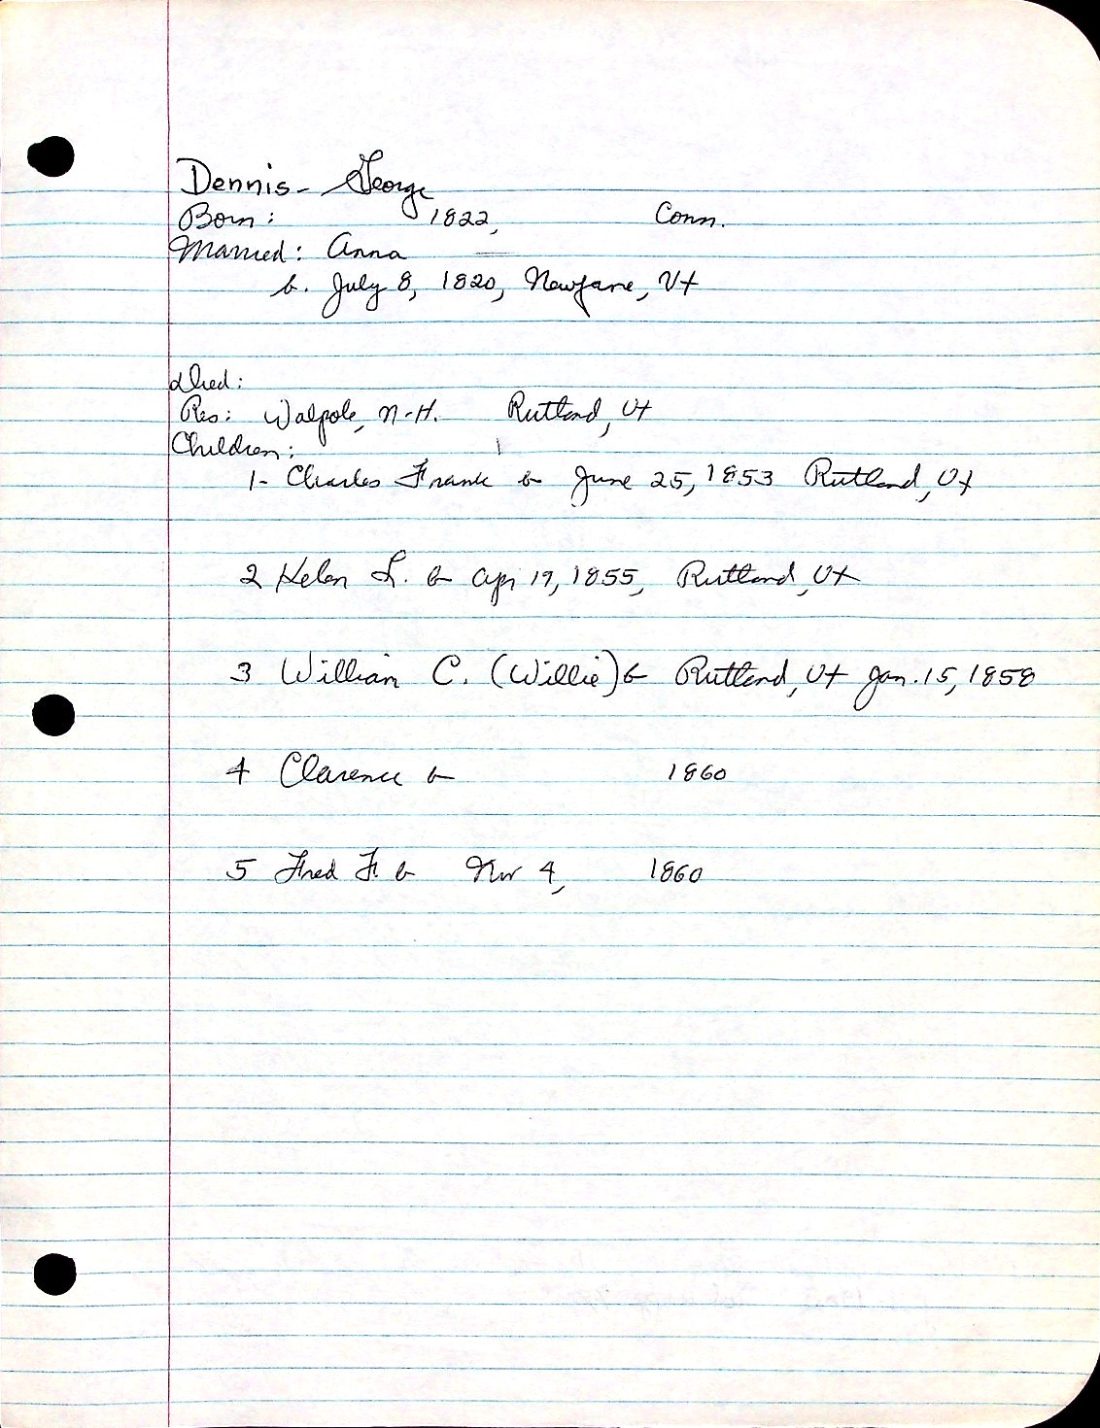 Dennis - George
Born: 1822, Conn.
Married: Anna
b. July 8, 1820, Newfane, Vt
Died:
Res: Walpole, N-H. Rutland, Vt
Children:
1- Charles Frank b June 25, 1853 Rutland, Vt
2 Helen L. b Apr 19, 1855, Rutland, Vt
3 William C. (Willie) b Rutland, Vt Jan. 15, 1858
4 Clarence b 1860
5 Fred F. b Nov 4, 1860